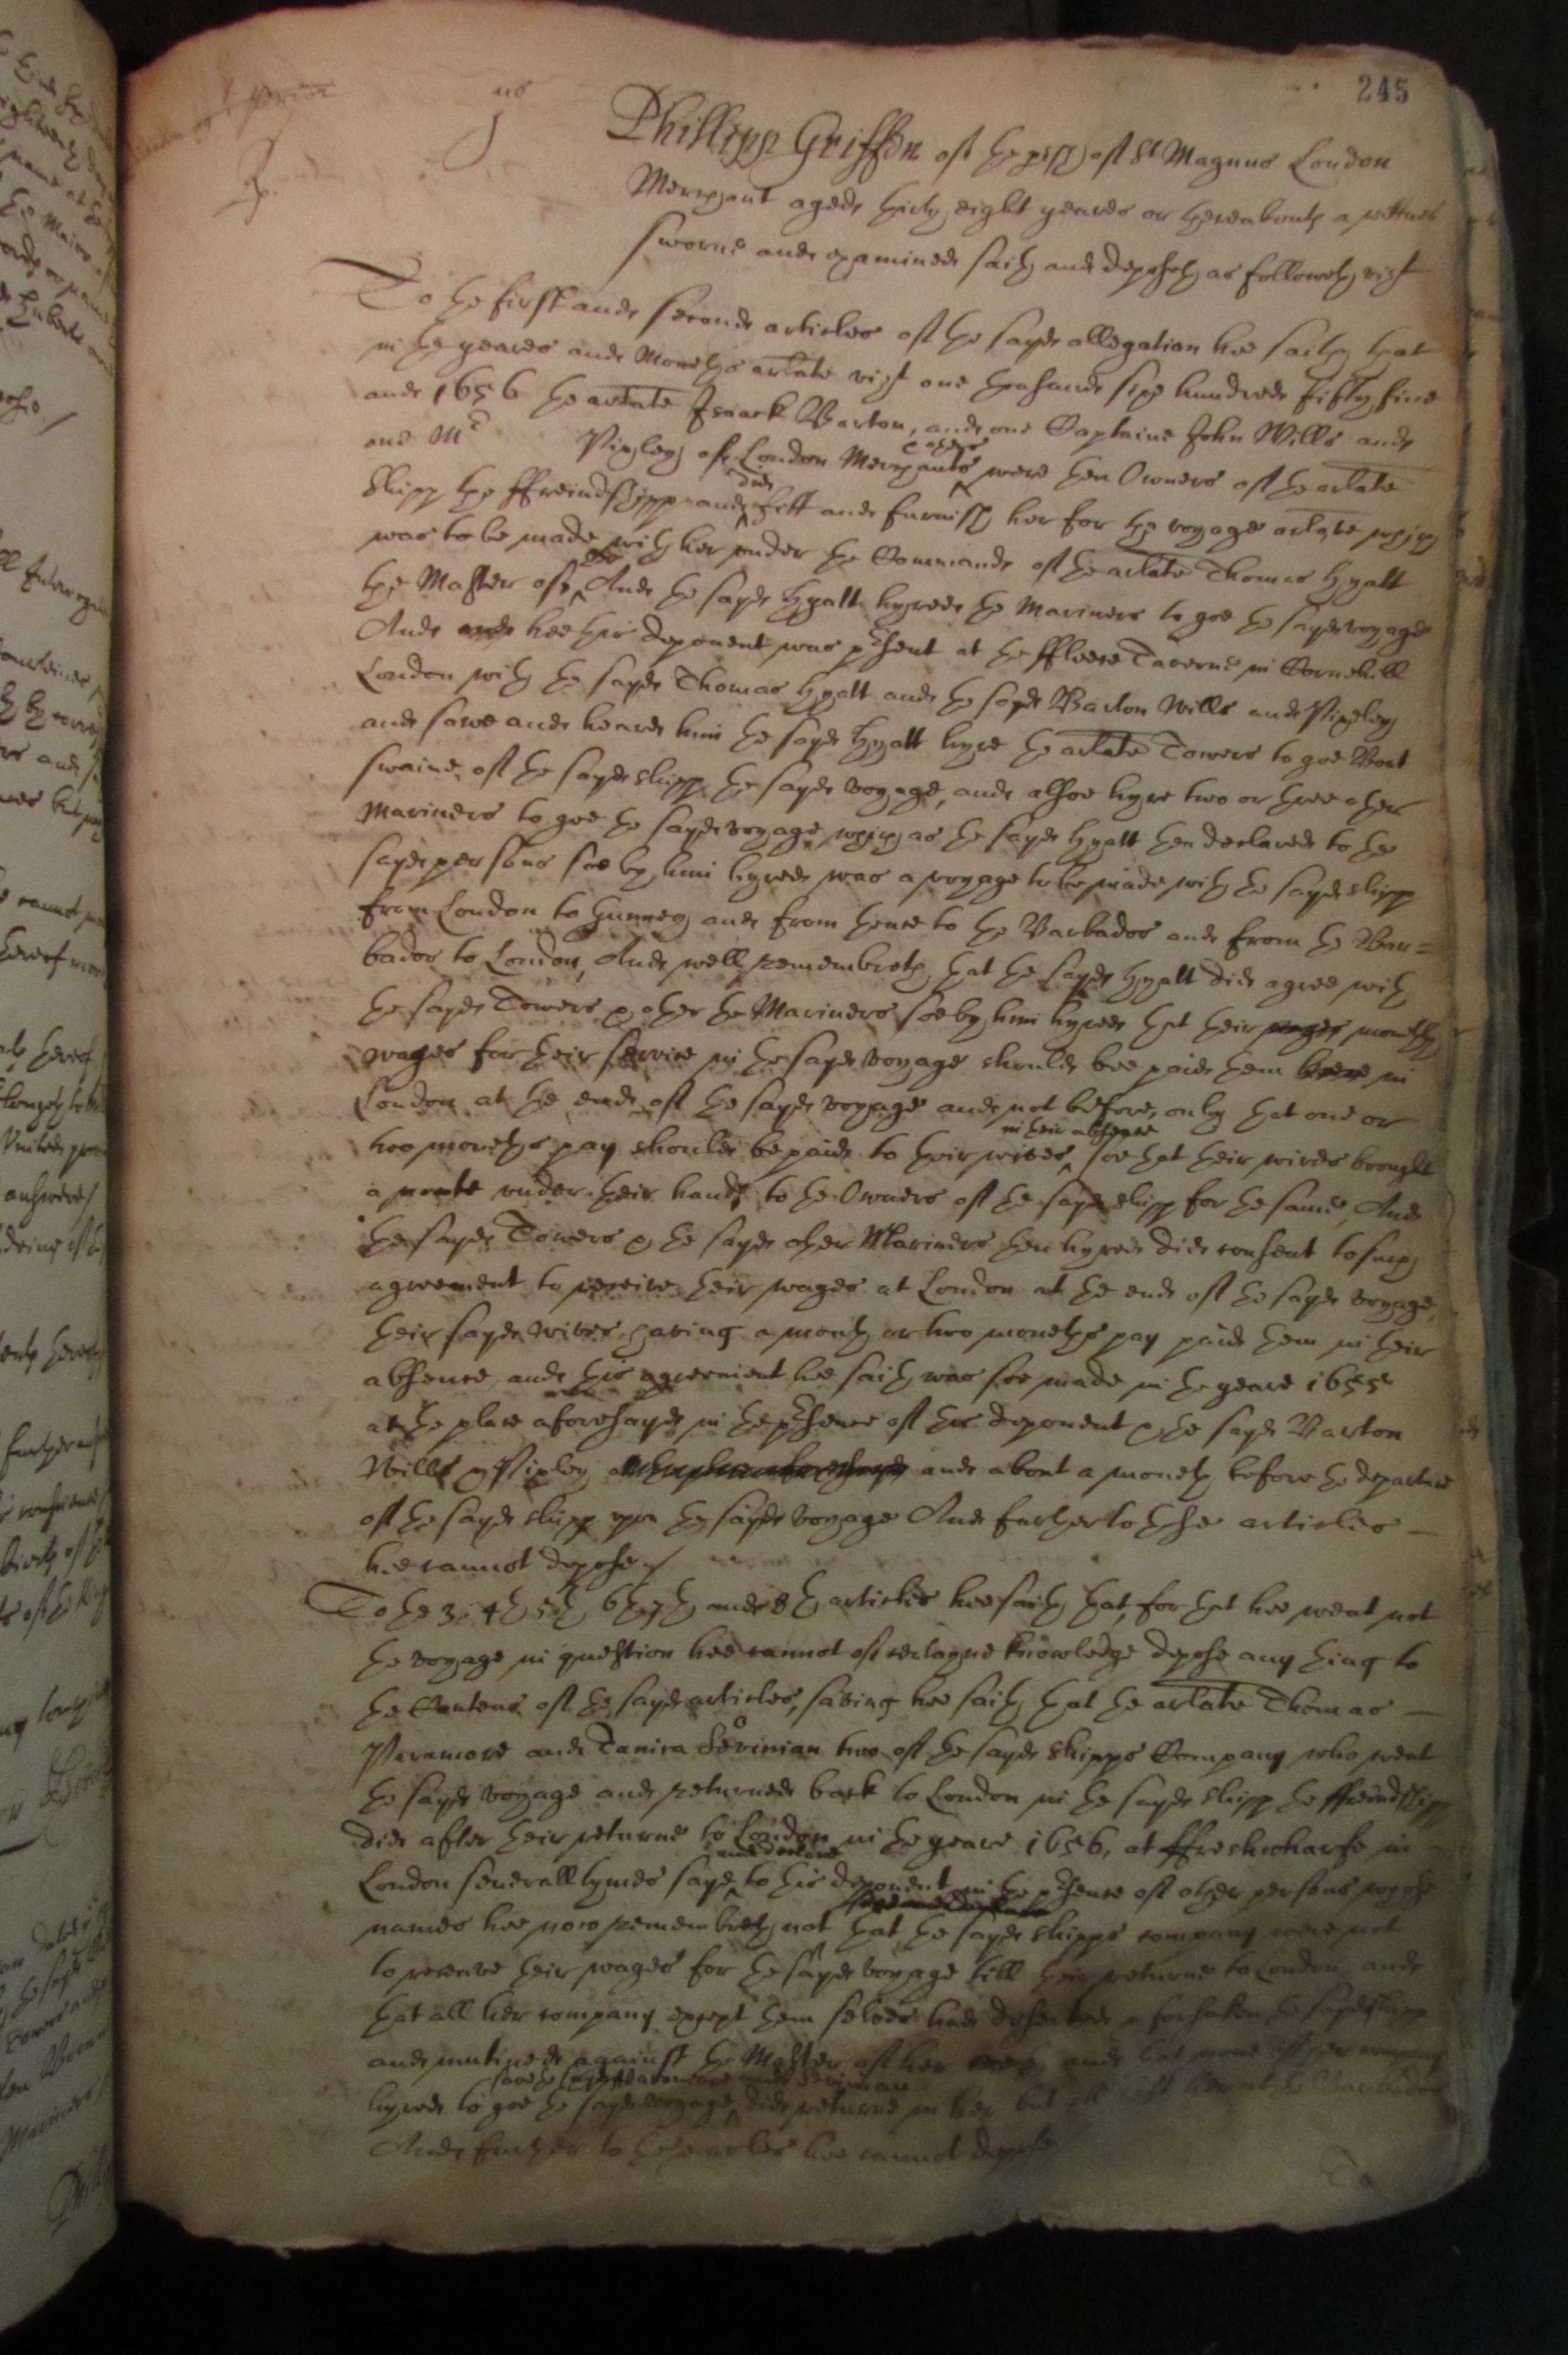 245
Phillipp Griffin of the p[ar]ish of St Magnus London
Merchant aged thirty eight yeares or thereabouts a wittnes
sworne and examined saith and deposeth as followeth vizt
To the first and second articles of the sayd allegation hee saith that
in the yeares and Moneths arlate vizt one thousand six hundred fifty five
and 1656 the arlate Isaack Barton, and one Captaine John Wills and
one Mr Pixley of London Merchants & others were then Owners of the arlate
Shipp the ffreindshipp and did fitt and furnish her for the voyage arlate which
was to be made with her under the Command of the arlate Thomas Hyatt
the Master of her And the sayd Hyatt hyred the Mariners to goe the sayd voyage
And hee this deponent was p[re]sent at the ffleece Taverne in Cornehill
London with the sayd Thomas Hyatt and the sayd Barton Wills and Pixley
and sawe and heard him the sayd Hyatt hyre the arlate Towers to goe Boat
swaine of the sayd shipp the sayd voyage, and alsoe hyre two or three other
Mariners to goe the sayd voyage which as the sayd Hyatt then declared to the
sayd persons soe by him hyred was a voyage to be made with the sayd shipp
from London to Gunney and from thence to the Barbados and from the Bar=
bados to London, And well remembreth that the sayd Hyatt did agree with
the sayd Towers & other the Mariners soe by him hyred that their wages monethly
wages for their service in the sayd voyage should bee paid them here in
London at the end of the sayd voyage and not before, only that one or
two moneths pay should be paid to their wives in their absence soe that their wives brought
a noate under their hands to the Owners of the sayd shipp for the same, And
the sayd Towers & the sayd other Mariners then hyred did consent to such
agreement to receive their wages at London at the end of the sayd voyage,
their sayd wives having a month or two moneths pay paid them in their
absence and this agreement hee saith was soe made in the yeare 1655
at the place aforesayd in the p[re]sence of this deponent & the sayd Barton
Wills & Pixley and about a moneth before the departure
of the sayd shipp upon the sayd voyage And further to these articles
hee cannot depose /
To the 3. 4th 5th 6th 7th and 8th articles hee saith that, for that hee went not
the voyage in question hee cannot of certayne knowledge depose any thing to
the Contens of the sayd articles, saving hee saith that the arlate Thomas
Paramore and Tanica Sevinian two of the sayd shipps Company who went
the sayd voyage and returned back to London in the sayd shipp the ffreindshipp
did after their returne to London in the yeare 1656, at ffreshwharfe in
London severall tymes saye and declare to this deponent in the p[re]sence of other persons whose
names hee now remembreth not that the sayd shipps company were not
to receive their wages for the sayd voyage till their returne to London, and
that all her company except them selves had deserted & forsaken the sayd shipp
and mutined against the Master of her and that none of her company
hyred to goe the sayd voyage save the sayd Paramore and Sevinian did returne in her but all left her at the Barbados
And further to these arlies hee cannot depose
To